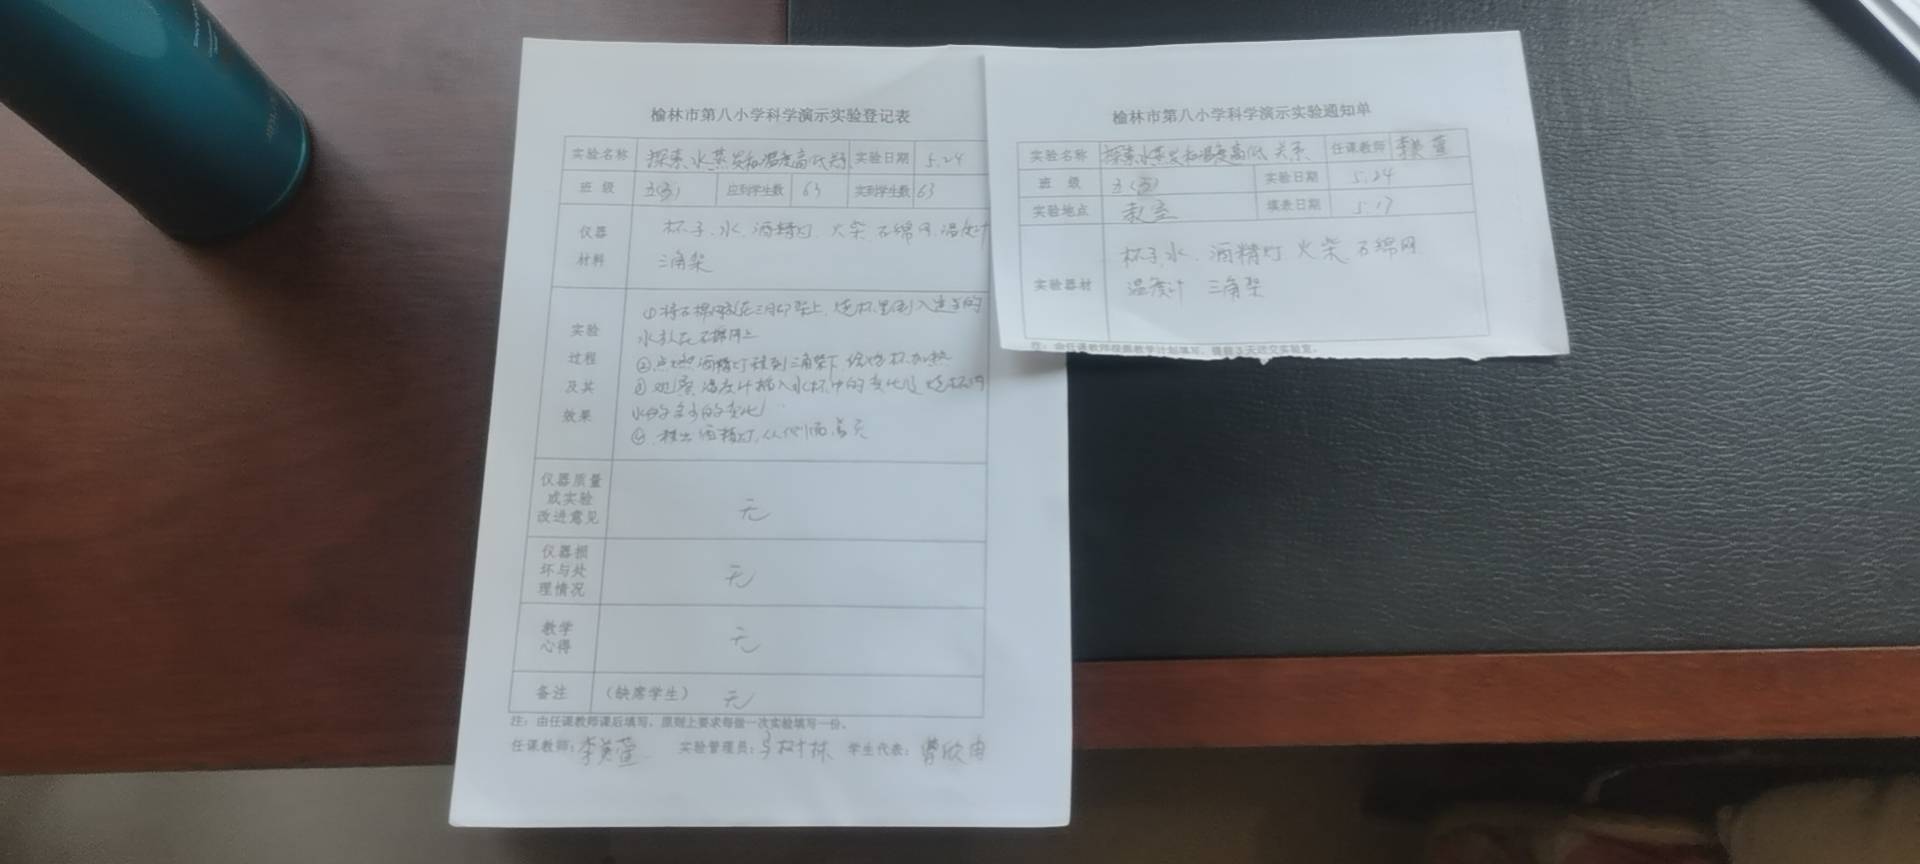 榆林市第八小学科学演示实验登记表
实验名称 探索水蒸发和温度高低关系 实验日期 5.24
班 级 五(5) 应到学生数 63 实到学生数 63
仪器 材料
杯子、水、酒精灯、火柴、石绵网、温度计
三角架
实验 过程 及其 效果
①将石棉网放在三角架上,烧杯里倒入适当的
水放在石棉网上
②点燃酒精灯移到三角架下,给烧杯加热
③观察温度计插入水杯中的变化及烧杯内
水的多少的变化
④移出酒精灯,从侧面盖灭
仪器质量 或实验 改进意见 无
仪器损 坏与处 理情况 无
教学 心得 无
备注 (缺席学生) 无
注:由任课教师课后填写,原则上要求每做一次实验填写一份。
任课教师: 实验管理员: 学生代表:
榆林市第八小学科学演示实验通知单
实验名称 探索水蒸发和温度高低关系 任课教师
班 级 五(5) 实验日期 5.24
实验地点 教室 填表日期 5.17
实验器材
杯子、水、酒精灯 火柴 石绵网
温度计 三角架
注:由任课教师根据教学计划填写,提前3天送交实验室。